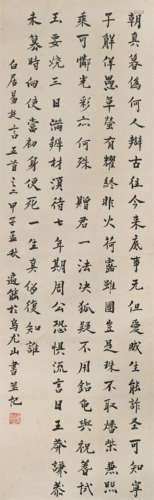 朝真暮偽何人辯古往今來底事无但愛臧生能詐圣可知寧
子解佯愚草螢有耀終非火荷露雖團豈是珠不取燔柴兼照
乘可憐光彩亦何殊 贈君一法決狐疑不用鉆龜與祝蓍試
玉要燒三日滿辨材須待七年期周公恐懼流言日王莽謙恭
未篡時向使當初身便死一生真偽復知誰
白居易放言五首之二 甲子孟秋 遍能於烏尤山書並記